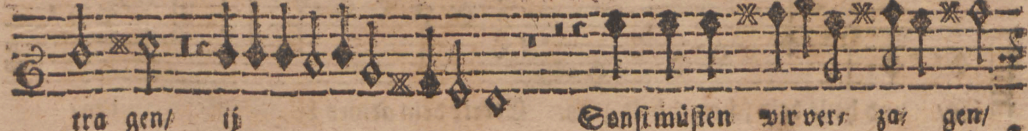 tra gen/ ij Sonst müsten wir ver⸗ za⸗ gen/